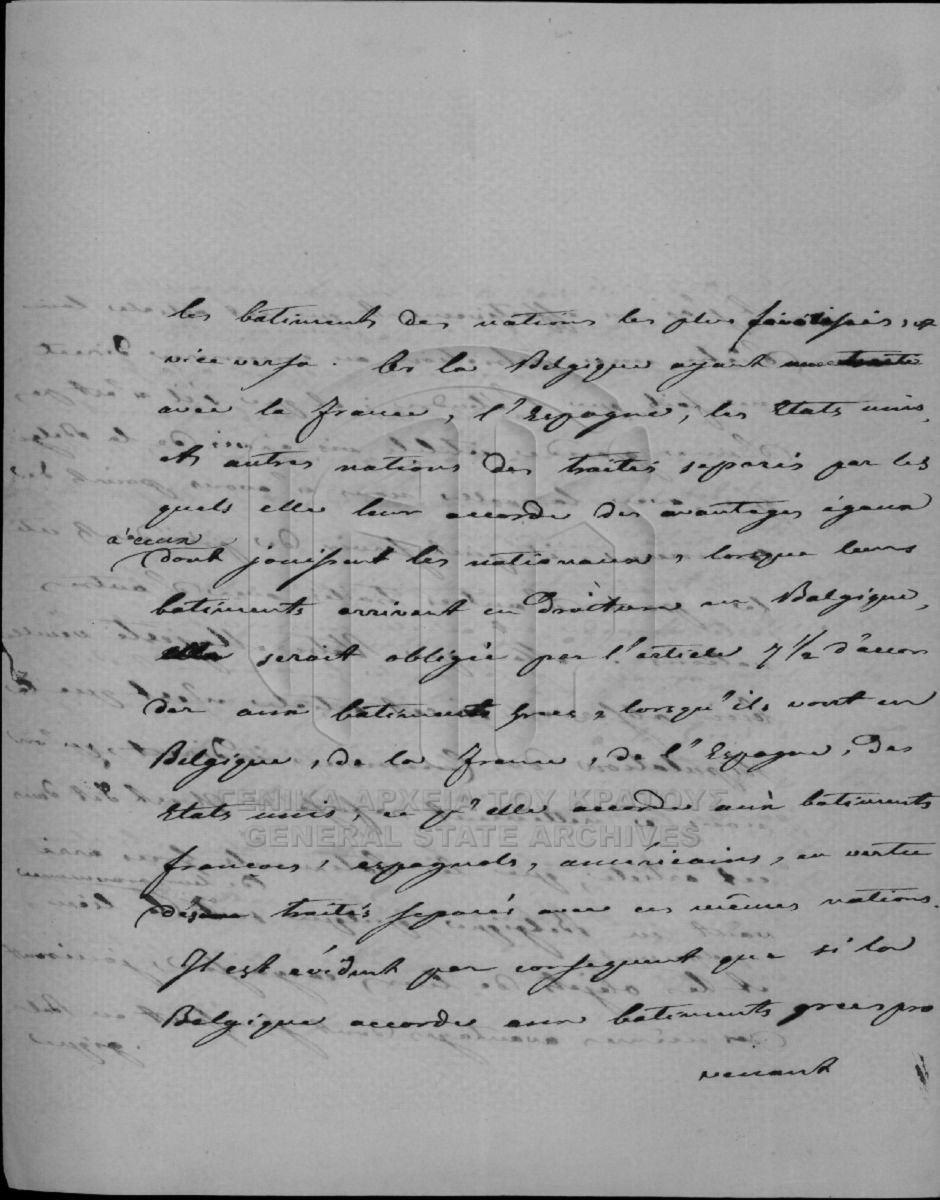 les bâtiments des nations les plus favorisées, et
vice versa. Or la Belgique ayant
avec la France, l'Espagne, les Etats unis,
et autres nations des traités separés par les
quels elle leur accorde des avantages égaux
à ceux
dont jouissent les nationaux, lorsque leurs
batiments arrivent en droiture en Belgique,
elle serait obligée par l'article 7 1/2 d'accor
der aux bâtiments grecs, lorsqu'ils vont en
Belgique, de la France, de l'Espagne, des
Etats unis, ce qu'elle accorde aux bâtiments
français, espagnols, américains, en vertu
des traités separés avec ces mêmes nations.
Il est évident par consequent que si la
Belgique accorde aux bâtiments grecs pro
venant
ΓΕΝΙΚΑ ΑΡΧΕΙΑ ΤΟΥ ΚΡΑΤΟΥΣ
GENERAL STATE ARCHIVES